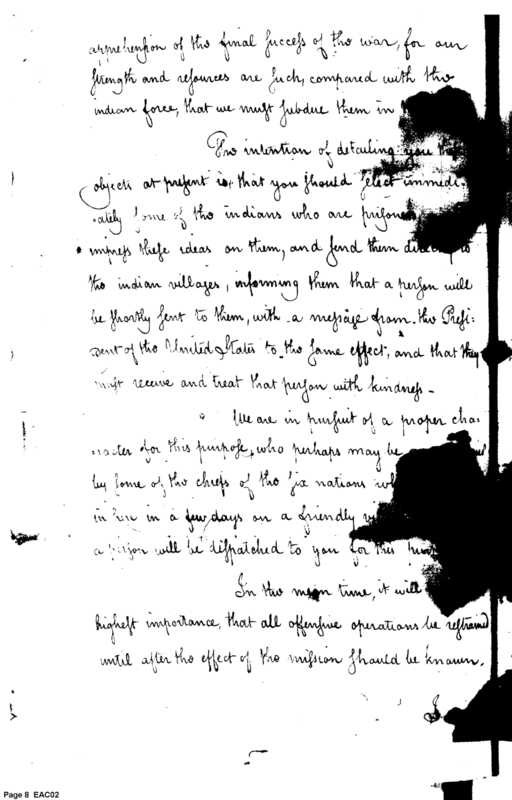 apprehension of the final success of the war, for our
strength and resources are such, compared with the
indian force, that we must subdue them in
The intention of detailing you the
objects at present is, that you should select immedi-
-ately some of the indians who are
impress these ideas on them, and send them directly to
the indian villages, informing them that a person will
be shortly sent to them, with a message from the Presi-
-dent of the United States to the same effect, and that they
must receive and treat that person with kindness -
We are in pursuit of a proper cha-
-racter for this purpose, who perhaps may be
by some of the chiefs of the six nations
in a few days on a friendly
a person will be dispatched to you for this
In the mean time, it will
highest importance, that all offensive operations be restrained
until after the effect of the mission should be known.
Page 8 EAC02